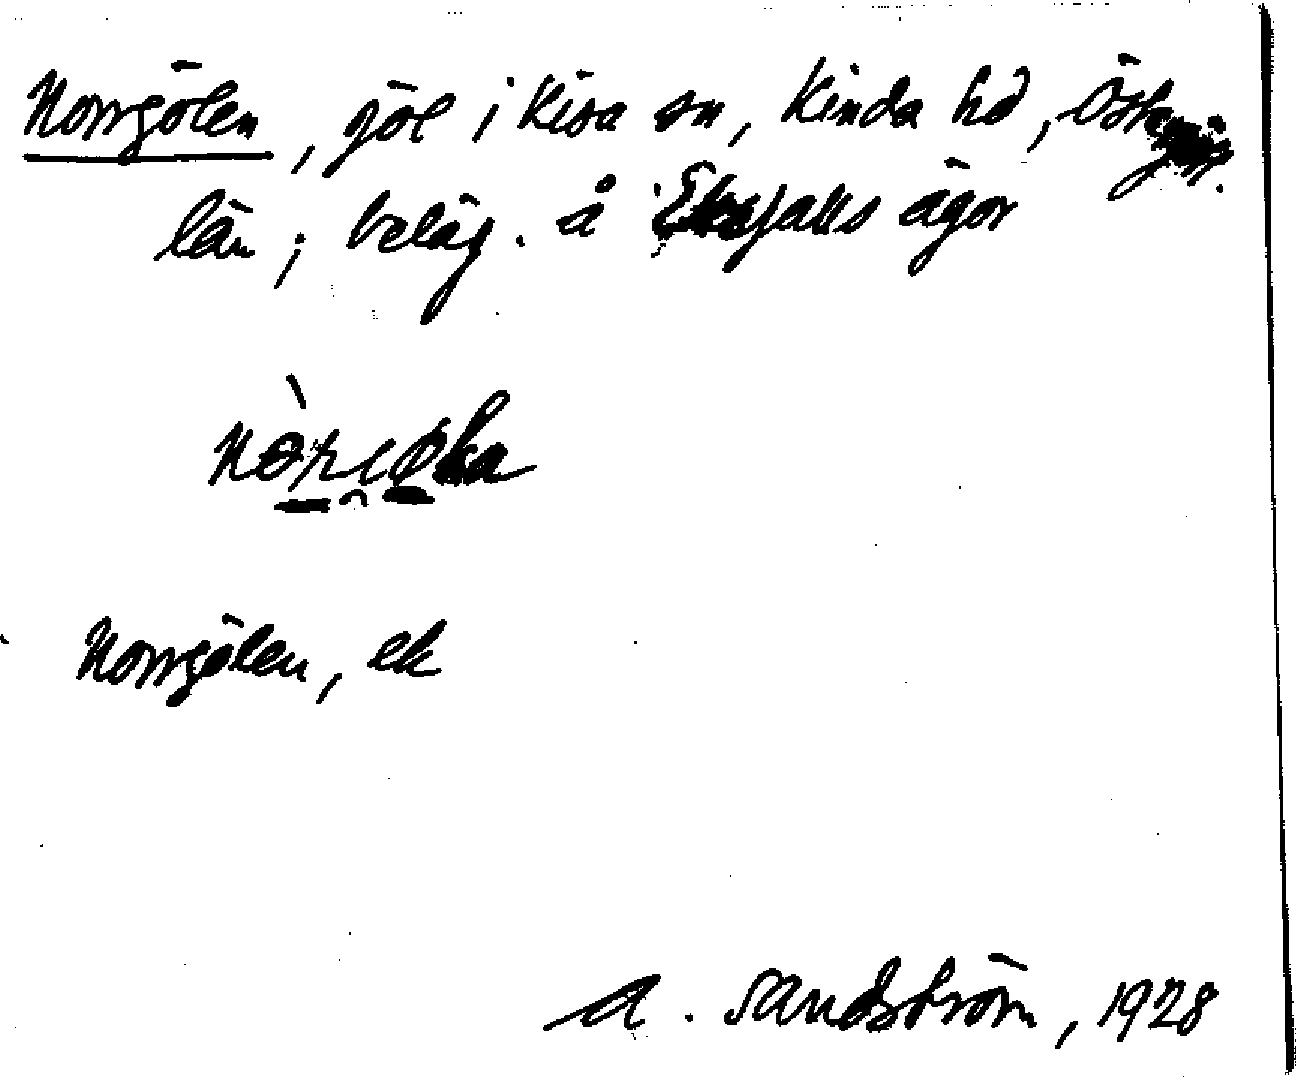 Norrgölen, göl i Kisa sn, Kinda hd, Östergötl.
län; beläg. å ägor
Norrgölen, ek
A. Sandström, 1928